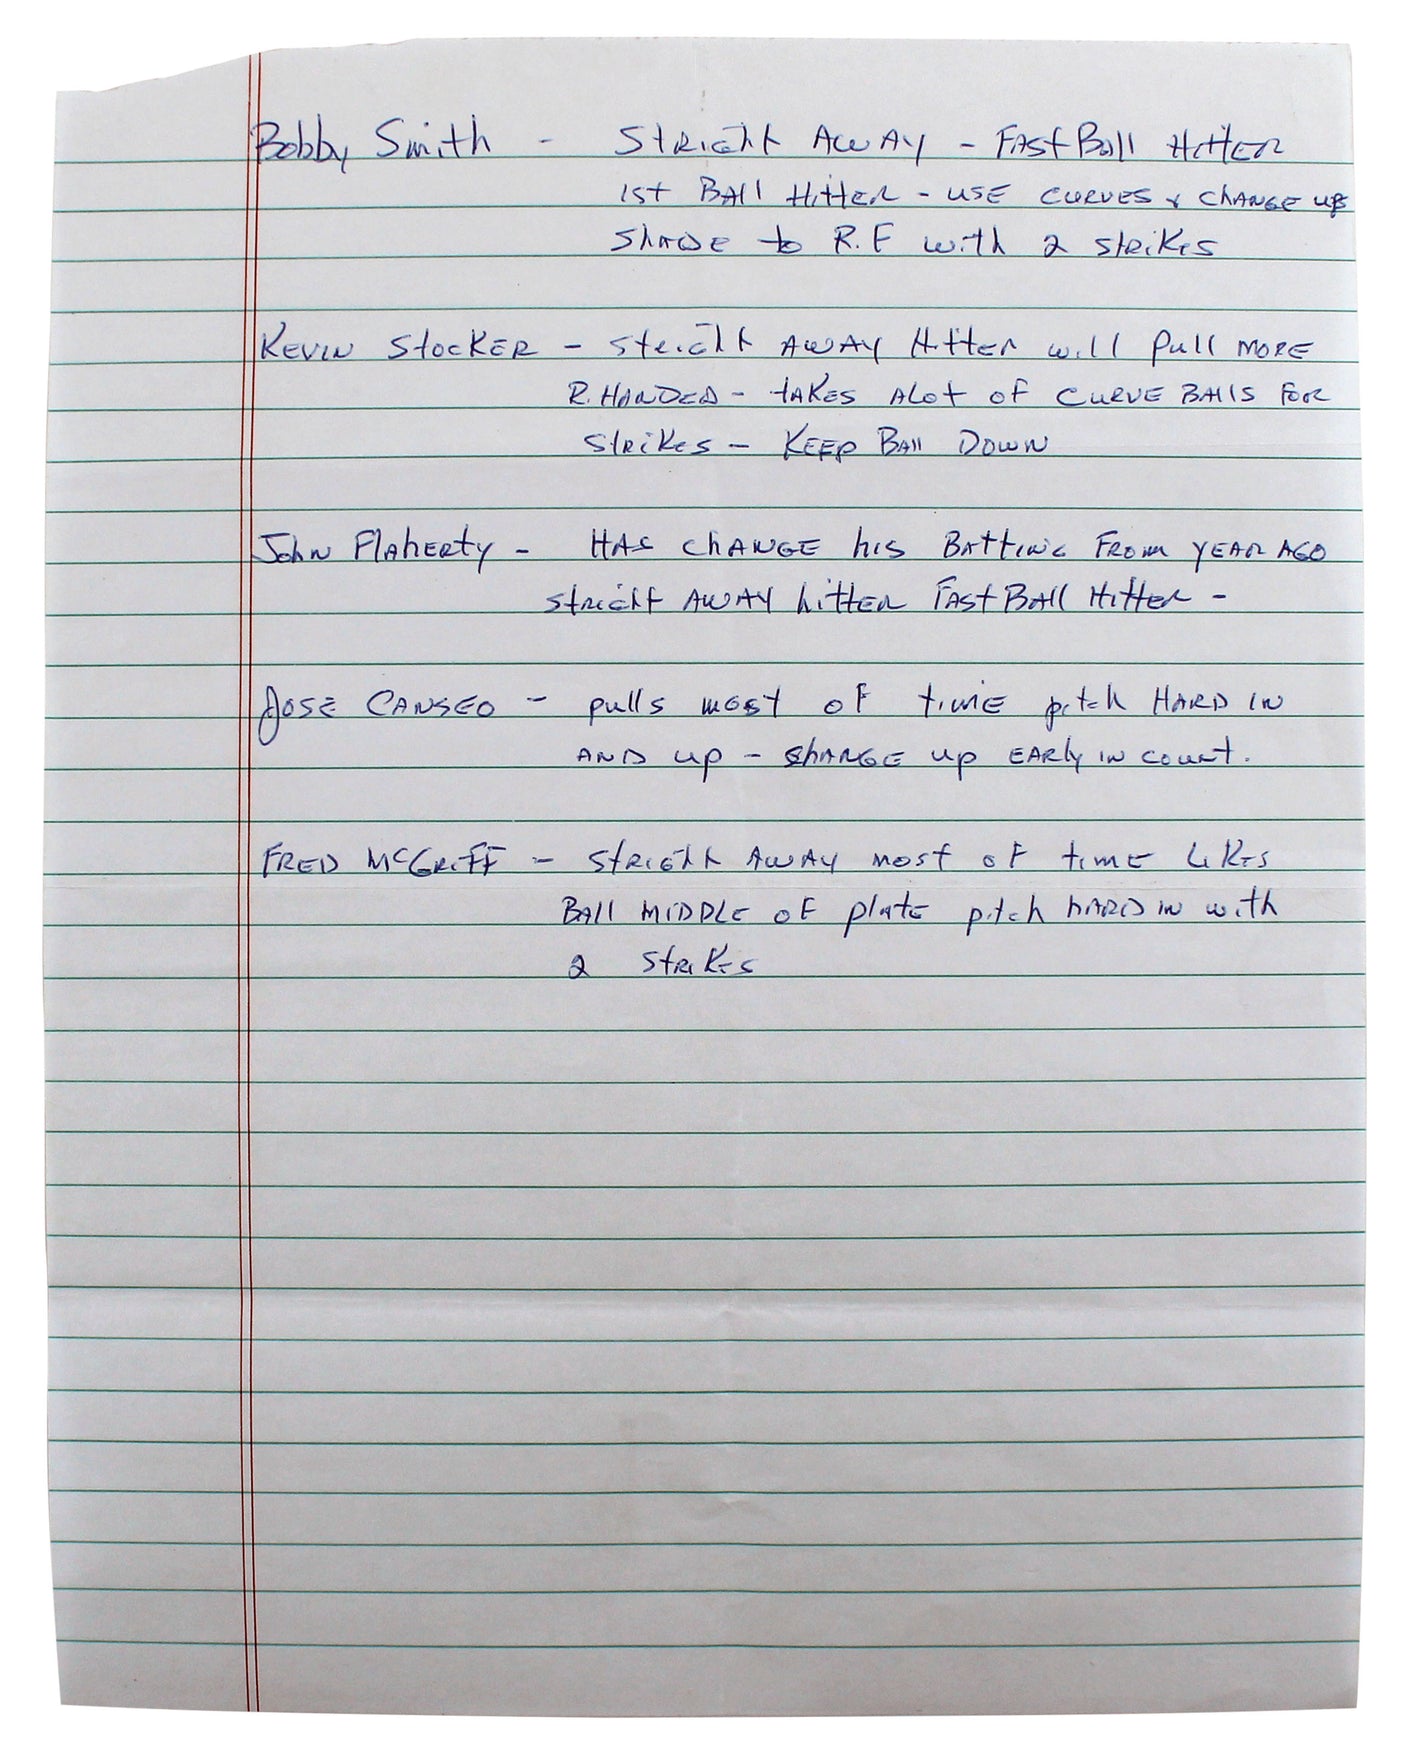 Bobby Smith - STRIGHT AWAY - FAST BALL HITTER
1ST BALL HITTER - USE CURVES & CHANGE UPS
SHADE to R.F with 2 STRIKES
KEVIN STOCKER - STRIGHT AWAY HITTER WILL PULL MORE
R. HANDED - TAKES ALOT OF CURVE BALLS FOR
STRIKES - KEEP BALL DOWN
John Flaherty - HAS CHANGE his BATTING FROM YEAR AGO
STRIGHT AWAY hitter FAST BALL HITTER -
JOSE CANSEO - pulls most OF TIME pitch HARD IN
AND up - CHANGE up EARLY IN COUNT.
FRED McGRIFF - STRIGHT AWAY most OF TIME LIKES
BALL MIDDLE OF plate pitch HARD IN with
2 STRIKES